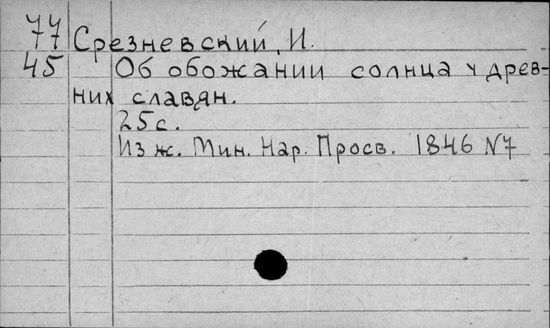 77 Срезневский, И.
45 Об обожании солнца у древ-
них славян.
25 с.
Из ж. Мин. Нар. Просв. 1846 N7